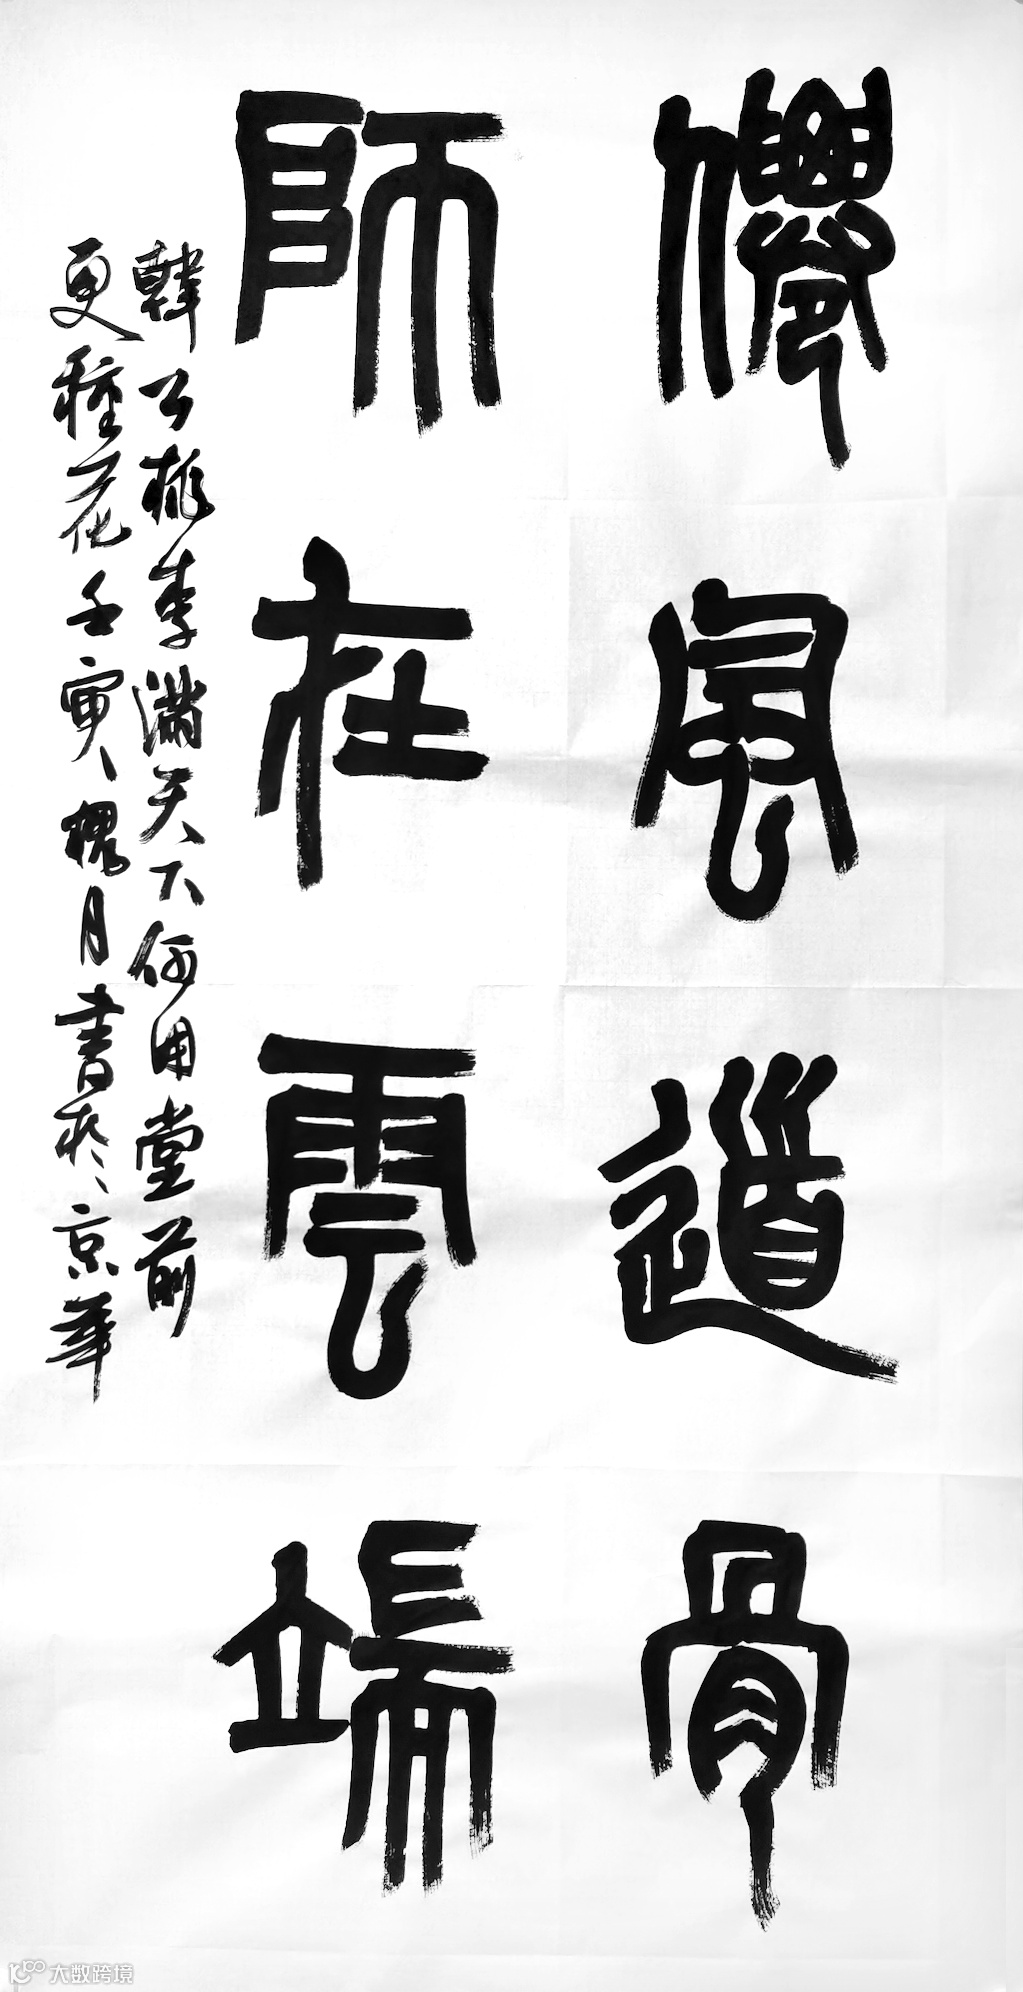 僊風道骨
師在雲端
韓公桃李滿天下何用堂前
更種花壬寅槐月書於京華
大数跨境